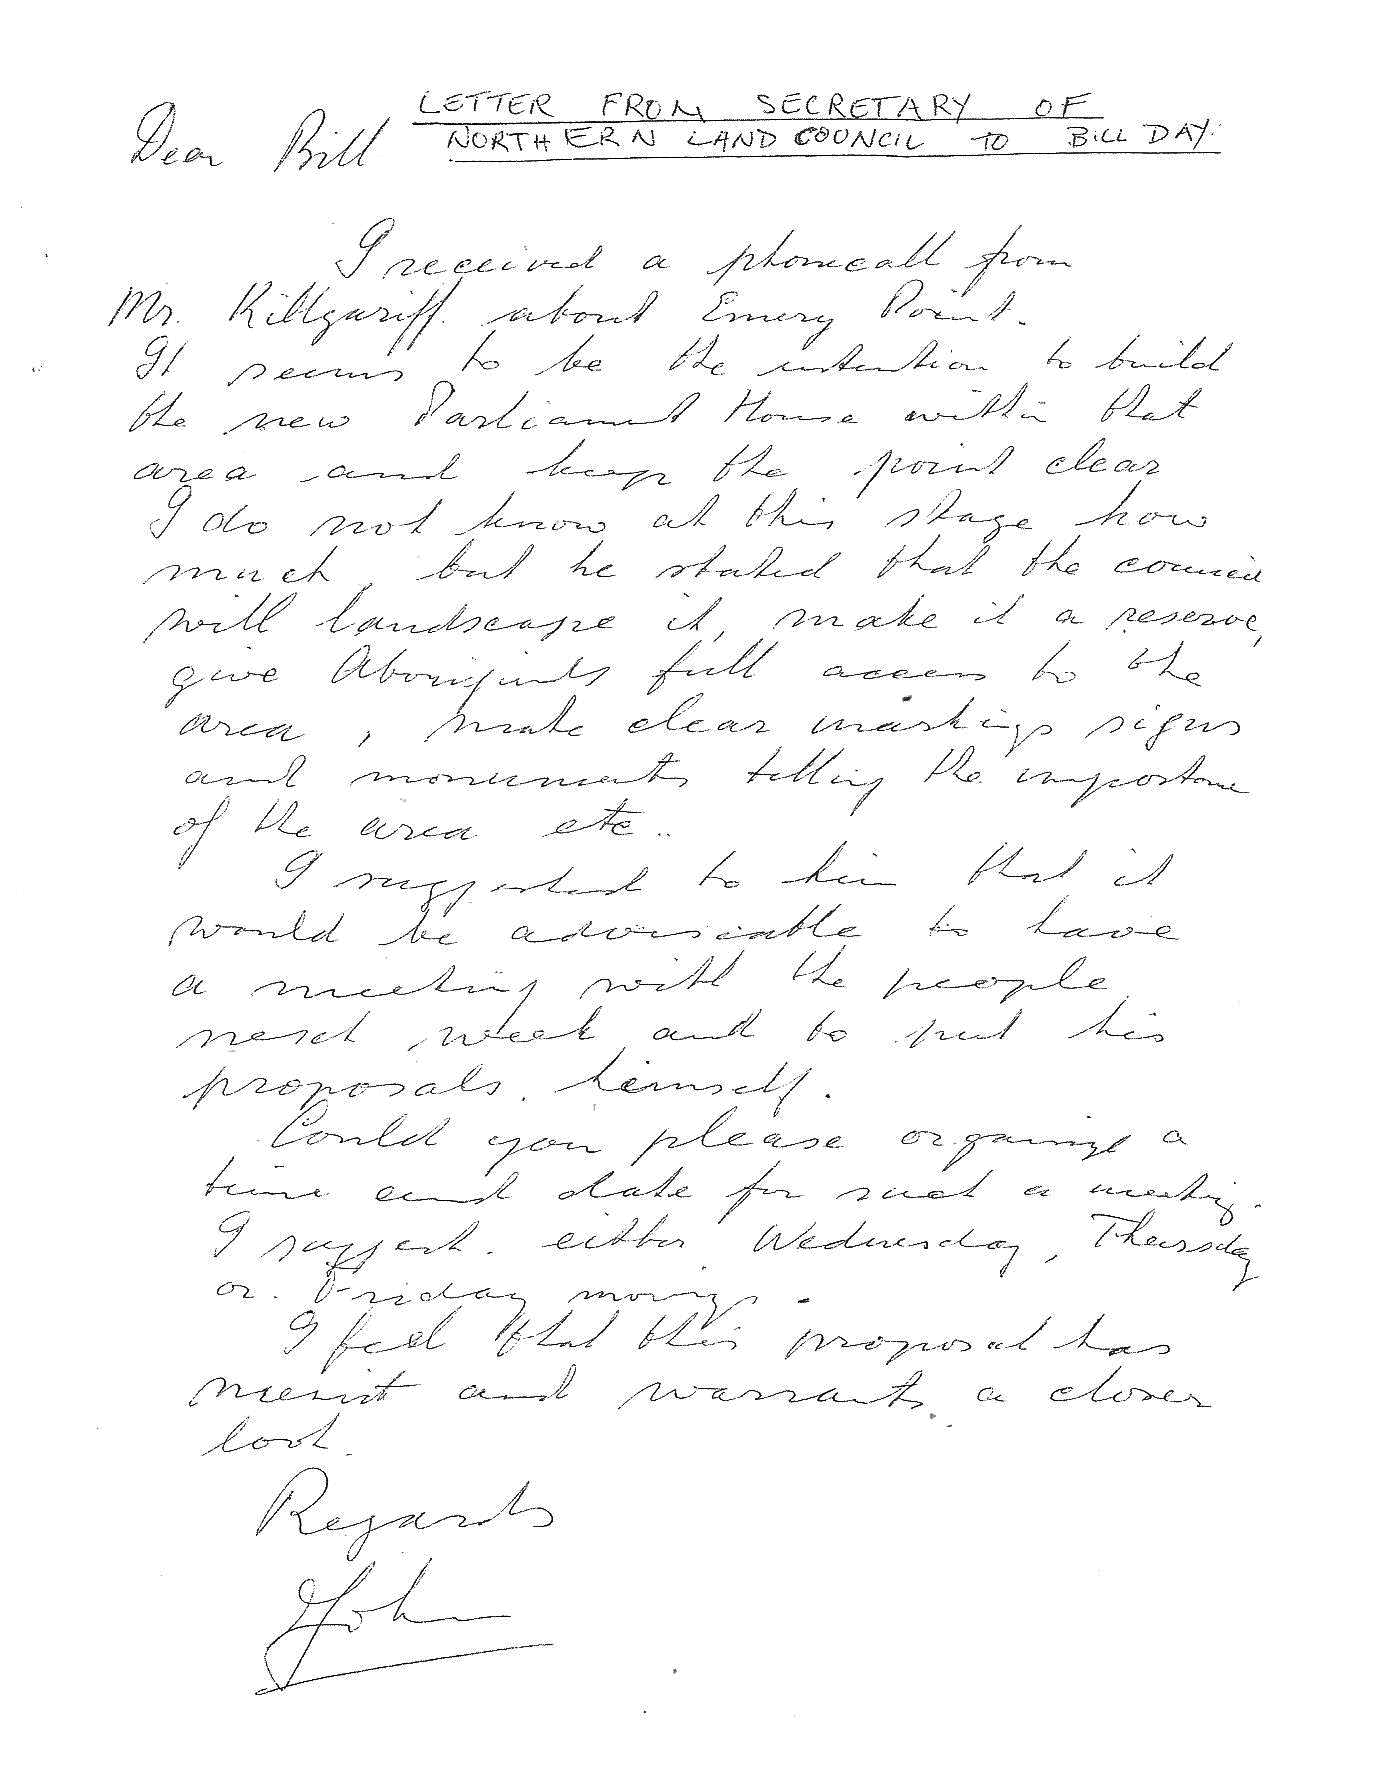 LETTER FROM SECRETARY OF
NORTHERN LAND COUNCIL TO BILL DAY.
Dear Bill
I received a phonecall from
Mr. Killgariff. about Emery Point.
It seems to be the intention to build
the new Parliament House within that
area and keep the point clear
I do not know at this stage how
much, but he stated that the council
will landscape it, make it a reserve,
give Aboriginals full access to the
area, make clear markings signs
and monuments telling the importance
of the area etc..
I suggested to him that it
would be adviseable to have
a meeting with the people
next week and to put his
proposals. himself.
Could you please organize a
time and date for such a meeting.
I suggest. either Wednesday, Thursday
or. Friday morng.
I feel that this proposal has
merit and warrants a closer
look.
Regards
John